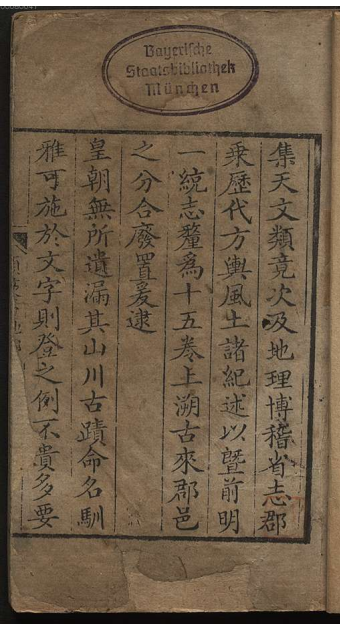 Bayerische
Staatsbibliothek
München
集天文類竟次及地理博稽省志郡
乘歷代方輿風土諸紀述以曁前明
一統志釐爲十五卷上溯古來郡邑
之分合廢置爰逮
皇朝無所遺漏其山川古蹟命名馴
雅可施於文字則登之例不貴多要